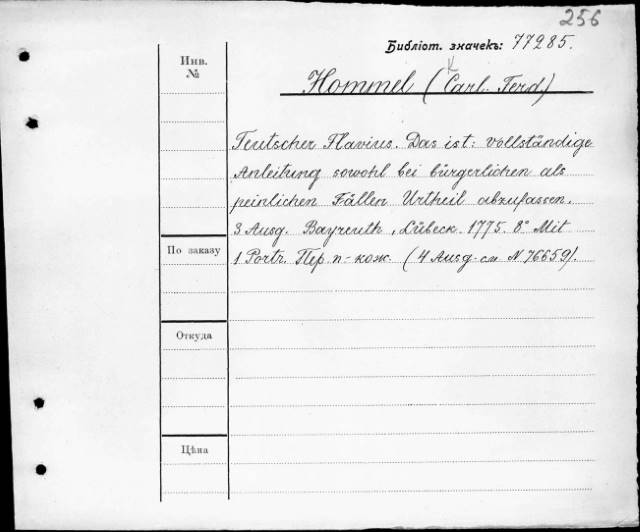 256
Библіот. значекъ: 77285.
Инв.
№
Hommel (Carl. Ferd.)
Teutscher Flavius. Das ist: vollständige
Anleitung sowohl bei bürgerlichen als
peinlichen Fällen Urtheil abzufassen.
3 Ausg. Bayreuth, Lübeck. 1775. 8° Mit
По заказу
1 Portr. Пер. п-кож. (4 Ausg. см N 76659).
Откуда
Цѣна